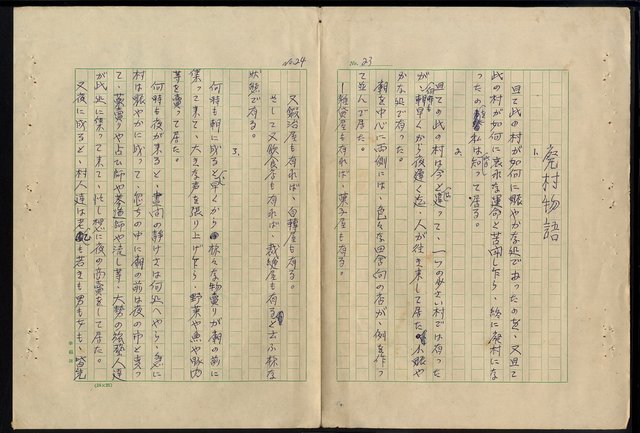 No. 23
廃村物語
1.
曽て此の村が如何に賑やかな処であったのを、又曽て
此の村が如何に哀れな運命と苦闘し乍ら、終に廃村にな
ったの 私は知って居る。
2.
曽て此の村は今と違って、一つの小さい村では有った
が、朝早くから夜遅く迄、人が往き来して居た 賑や
かな処で有った。
廟を中心に両側には、色々な田舎向の店が、例を作っ
て並んで居た。
雑貨屋も有れば、菓子屋も有る。
No. 24
又鍛冶屋も有れば、白鞋屋も有る。
そして又飲食店も有れば、裁縫屋も有ると云ふ様な
状態で有る。
3.
何時も朝に成ると早くから様々な物売りが廟の前に
集って来て、大きな声を張り上げ乍ら、野菜や魚や豚肉
等を売って居た。
何時も夜が来ると、昼間の静けさは何処へやら、急に
村は賑やかに成って、忽ちの中に廟の前は夜の市と変っ
て、薬売や占ひ師や 流し等、大勢の 芸人達
が此処に集って来て、忙し想に夜の商売をして居た。
又夜に成ると、村人達は老も若きも男も女も、皆先
(25×12)